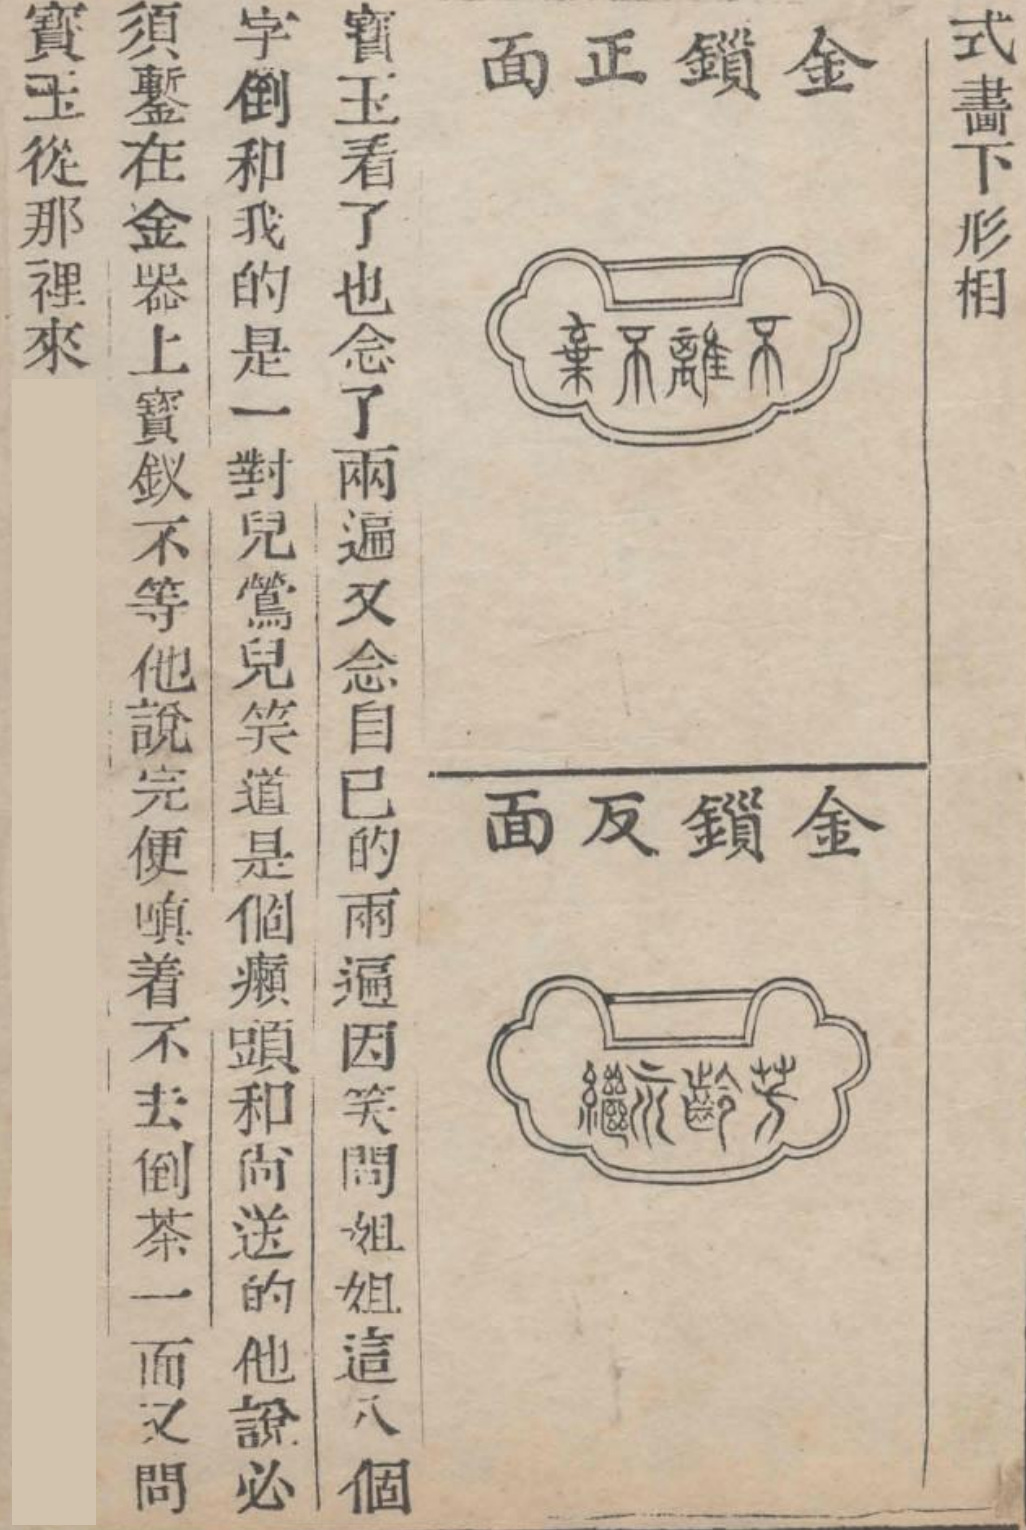 式畵下形相
金鎖正面
不離不棄
金鎖反面
芳齡永繼
寶玉看了也念了兩遍又念自已的兩遍因笑問姐姐這八個
字倒和我的是一對兒鶯兒笑道是個癩頭和尚送的他說必
須鏨在金器上寶釵不等他說完便嗔着不去倒茶一面又問
寳玉從那裡來